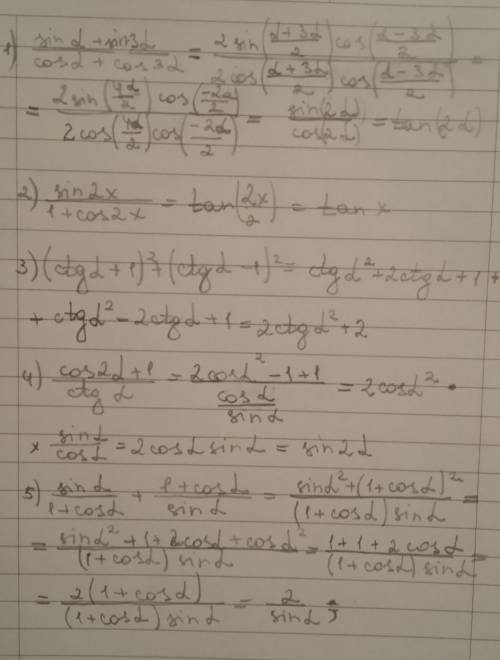 1) (sinα + sin3α)/(cosα + cos3α) = (2 sin((α+3α)/2) cos((α-3α)/2))/(2 cos((α+3α)/2) cos((α-3α)/2)) =
= (2 sin(4α/2) cos(-2α/2))/(2 cos(4α/2) cos(-2α/2)) = sin(2α)/cos(2α) = tan(2α)
2) sin2x/(1+cos2x) = tan(2x/2) = tan x
3) (ctgα + 1)² + (ctgα - 1)² = ctgα² + 2ctgα + 1 +
+ ctgα² - 2ctgα + 1 = 2ctgα² + 2
4) (cos2α + 1)/(ctgα) = (2cosα² - 1 + 1)/(cosα/sinα) = 2cosα² ·
× sinα/cosα = 2cosα sinα = sin2α
5) sinα/(1+cosα) + (1+cosα)/sinα = (sinα² + (1+cosα)²)/((1+cosα) sinα) =
= (sinα² + 1 + 2cosα + cosα²)/((1+cosα) sinα) = (1 + 1 + 2cosα)/((1+cosα) sinα) =
= (2(1+cosα))/((1+cosα) sinα) = 2/sinα ;